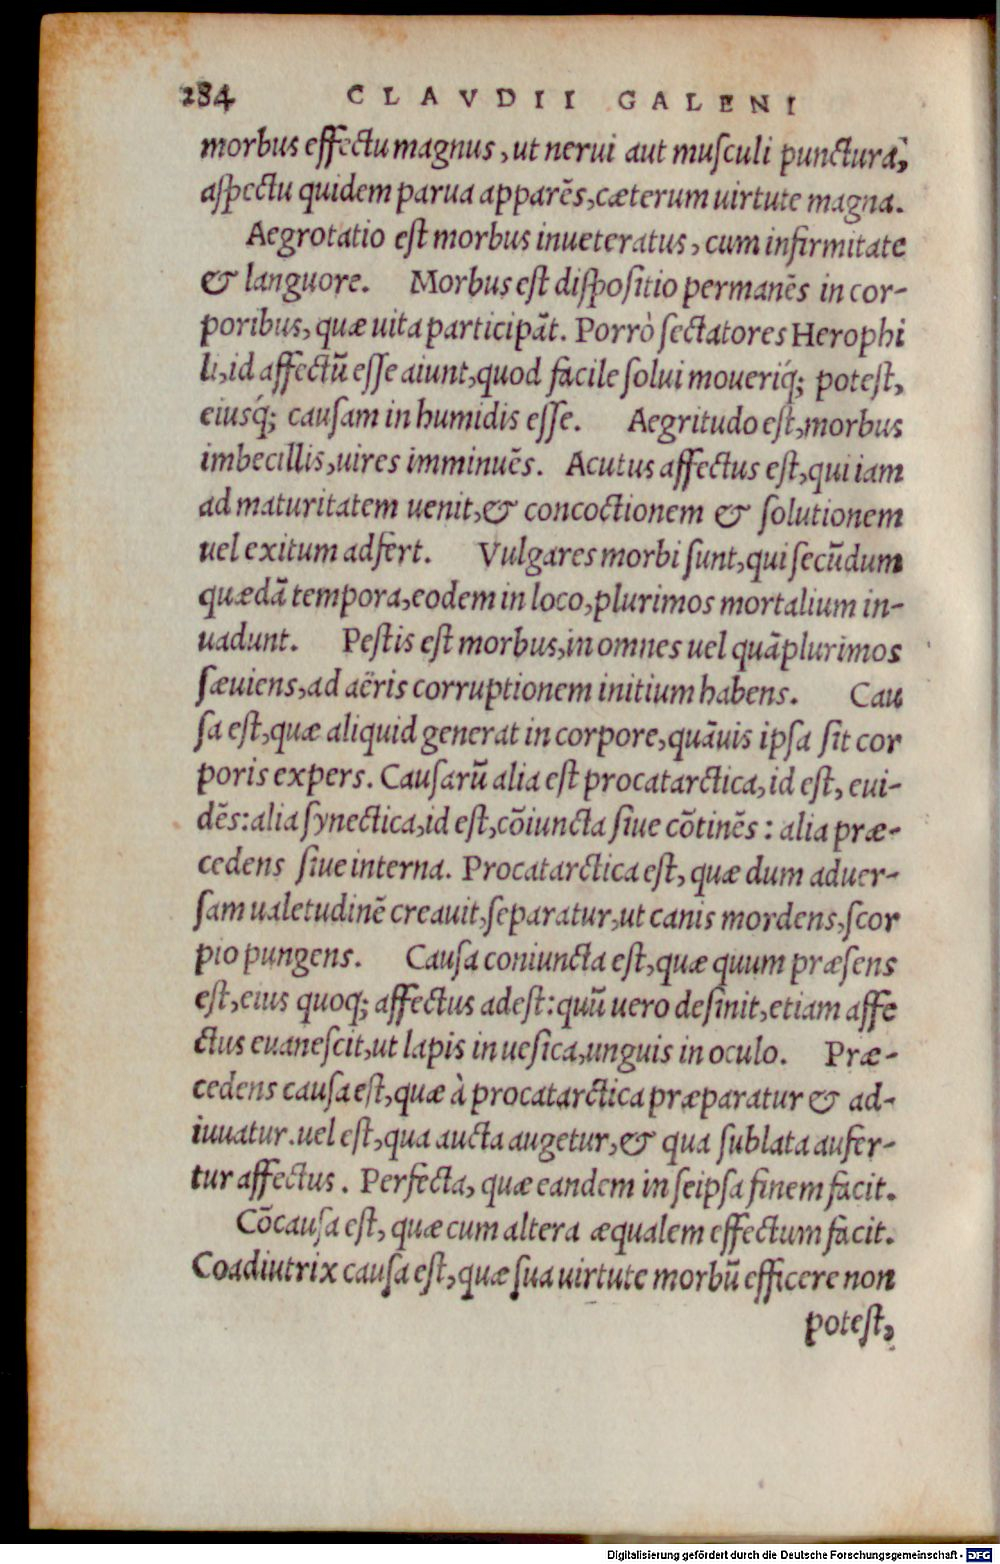 284 CLAVDII GALENI
morbus effectu magnus, ut nerui aut musculi punctura,
aspectu quidem parua apparẽs, cæterum uirtute magna.
Aegrotatio est morbus inueteratus, cum infirmitate
& languore. Morbus est dispositio permanẽs in cor-
poribus, quæ uita participãt. Porrò sectatores Herophi
li, id affectũ esse aiunt, quod facile solui moueriq́; potest,
eiusq́; causam in humidis esse. Aegritudo est, morbus
imbecillis, uires imminuẽs. Acutus affectus est, qui iam
ad maturitatem uenit, & concoctionem & solutionem
uel exitum adfert. Vulgares morbi sunt, qui secũdum
quædã tempora, eodem in loco, plurimos mortalium in-
uadunt. Pestis est morbus, in omnes uel quãplurimos
sæuiens, ad aëris corruptionem initium habens. Cau
sa est, quæ aliquid generat in corpore, quãuis ipsa sit cor
poris expers. Causarũ alia est procatarctica, id est, eui-
dẽs: alia synectica, id est, cõiuncta siue cõtinẽs: alia præ-
cedens siue interna. Procatarctica est, quæ dum aduer-
sam ualetudinẽ creauit, separatur, ut canis mordens, scor
pio pungens. Causa coniuncta est, quæ quum præsens
est, eius quoq; affectus adest: quũ uero desinit, etiam affe
ctus euanescit, ut lapis in uesica, unguis in oculo. Præ-
cedens causa est, quæ à procatarctica præparatur & ad-
iuuatur. uel est, qua aucta augetur, & qua sublata aufer-
tur affectus. Perfecta, quæ eandem in seipsa finem facit.
Cõcausa est, quæ cum altera æqualem effectum facit.
Coadiutrix causa est, quæ sua uirtute morbũ efficere non
potest,
Digitalisierung gefördert durch die Deutsche Forschungsgemeinschaft - DFG